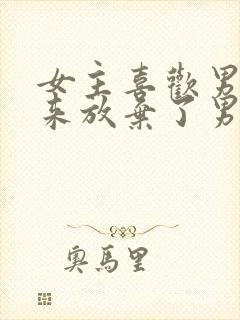 女主喜歡男
來放棄了男
奧馬里